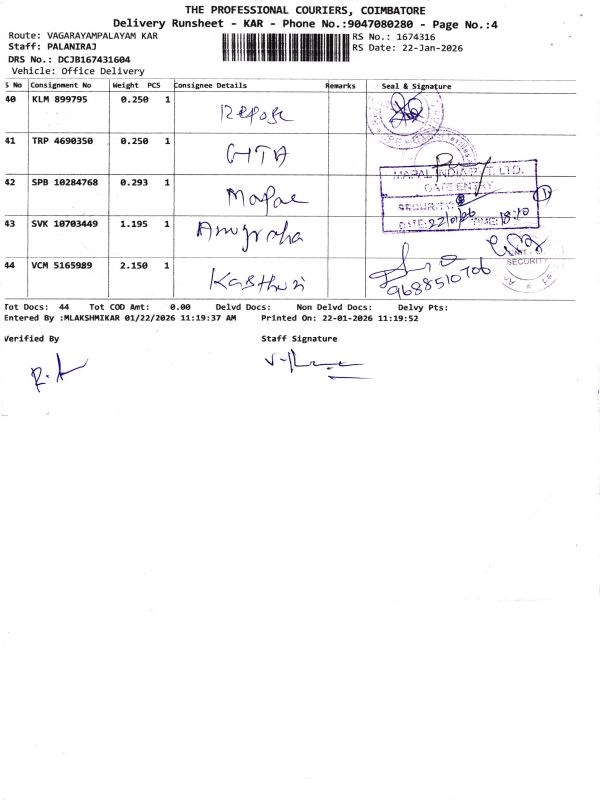 THE PROFESSIONAL COURIERS, COIMBATORE
Delivery Runsheet - KAR - Phone No.:9047080280 - Page No.:4
Route: VAGARAYAMPALAYAM KAR
RS No.: 1674316
Staff: PALANIRAJ
RS Date: 22-Jan-2026
DRS No.: DCJB167431604
Vehicle: Office Delivery
S No Consignment No Weight PCS Consignee Details Remarks Seal & Signature
40 KLM 899795 0.250 1 Repose
41 TRP 4690350 0.250 1 GTA
42 SPB 10284768 0.293 1 Mapal
MAPAL INDIA PVT. LTD.
GATE ENTRY
SECURITY:
DATE: 22/01/26 TIME: 18:10
43 SVK 10703449 1.195 1 Anugraha
SECURITY
44 VCM 5165989 2.150 1 Kasthuri
9688510706
Tot Docs: 44 Tot COD Amt: 0.00 Delvd Docs: Non Delvd Docs: Delvy Pts:
Entered By :MLAKSHMIKAR 01/22/2026 11:19:37 AM Printed On: 22-01-2026 11:19:52
Verified By Staff Signature